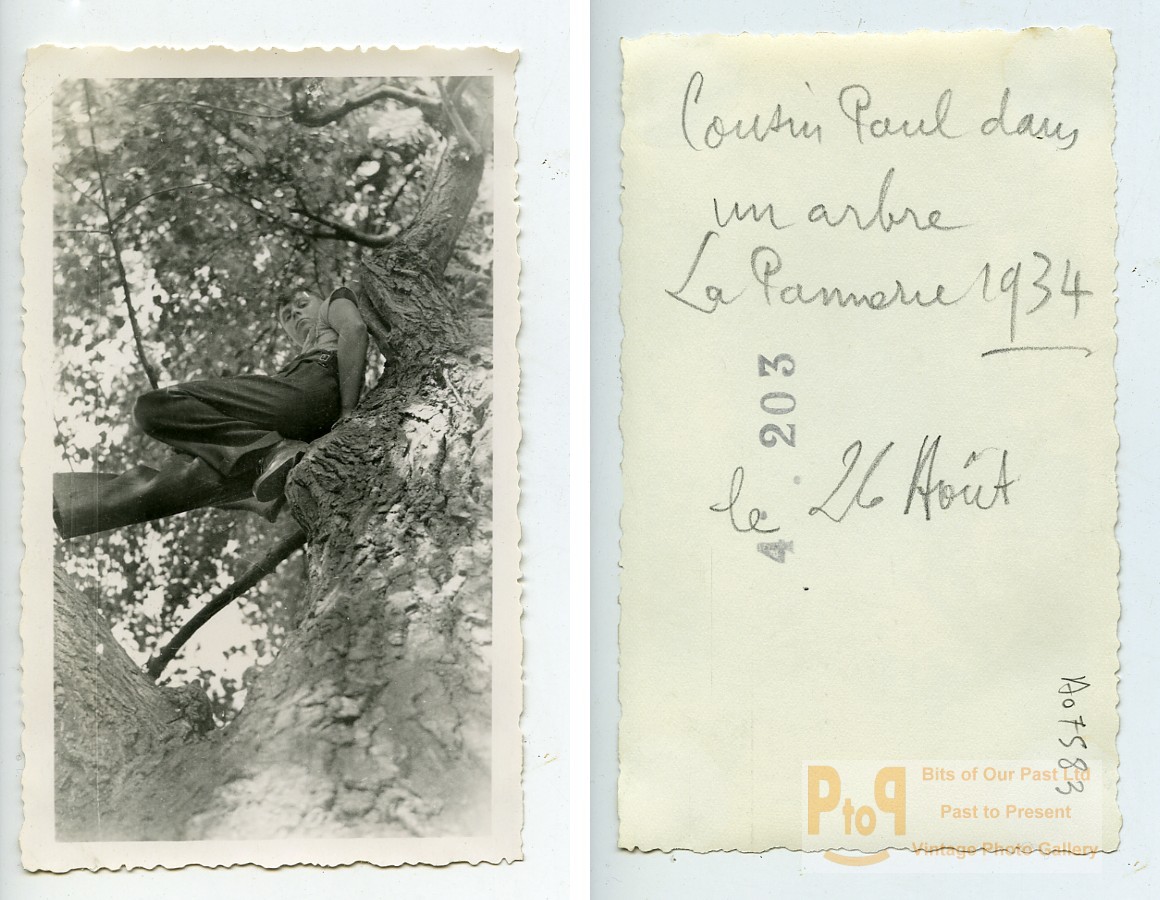 Cousin Paul dans
un arbre
La Pannerie 1934
4.203
le 26 Août
A07583
PtoP
Bits of Our Past Ltd
Past to Present
Vintage Photo Gallery